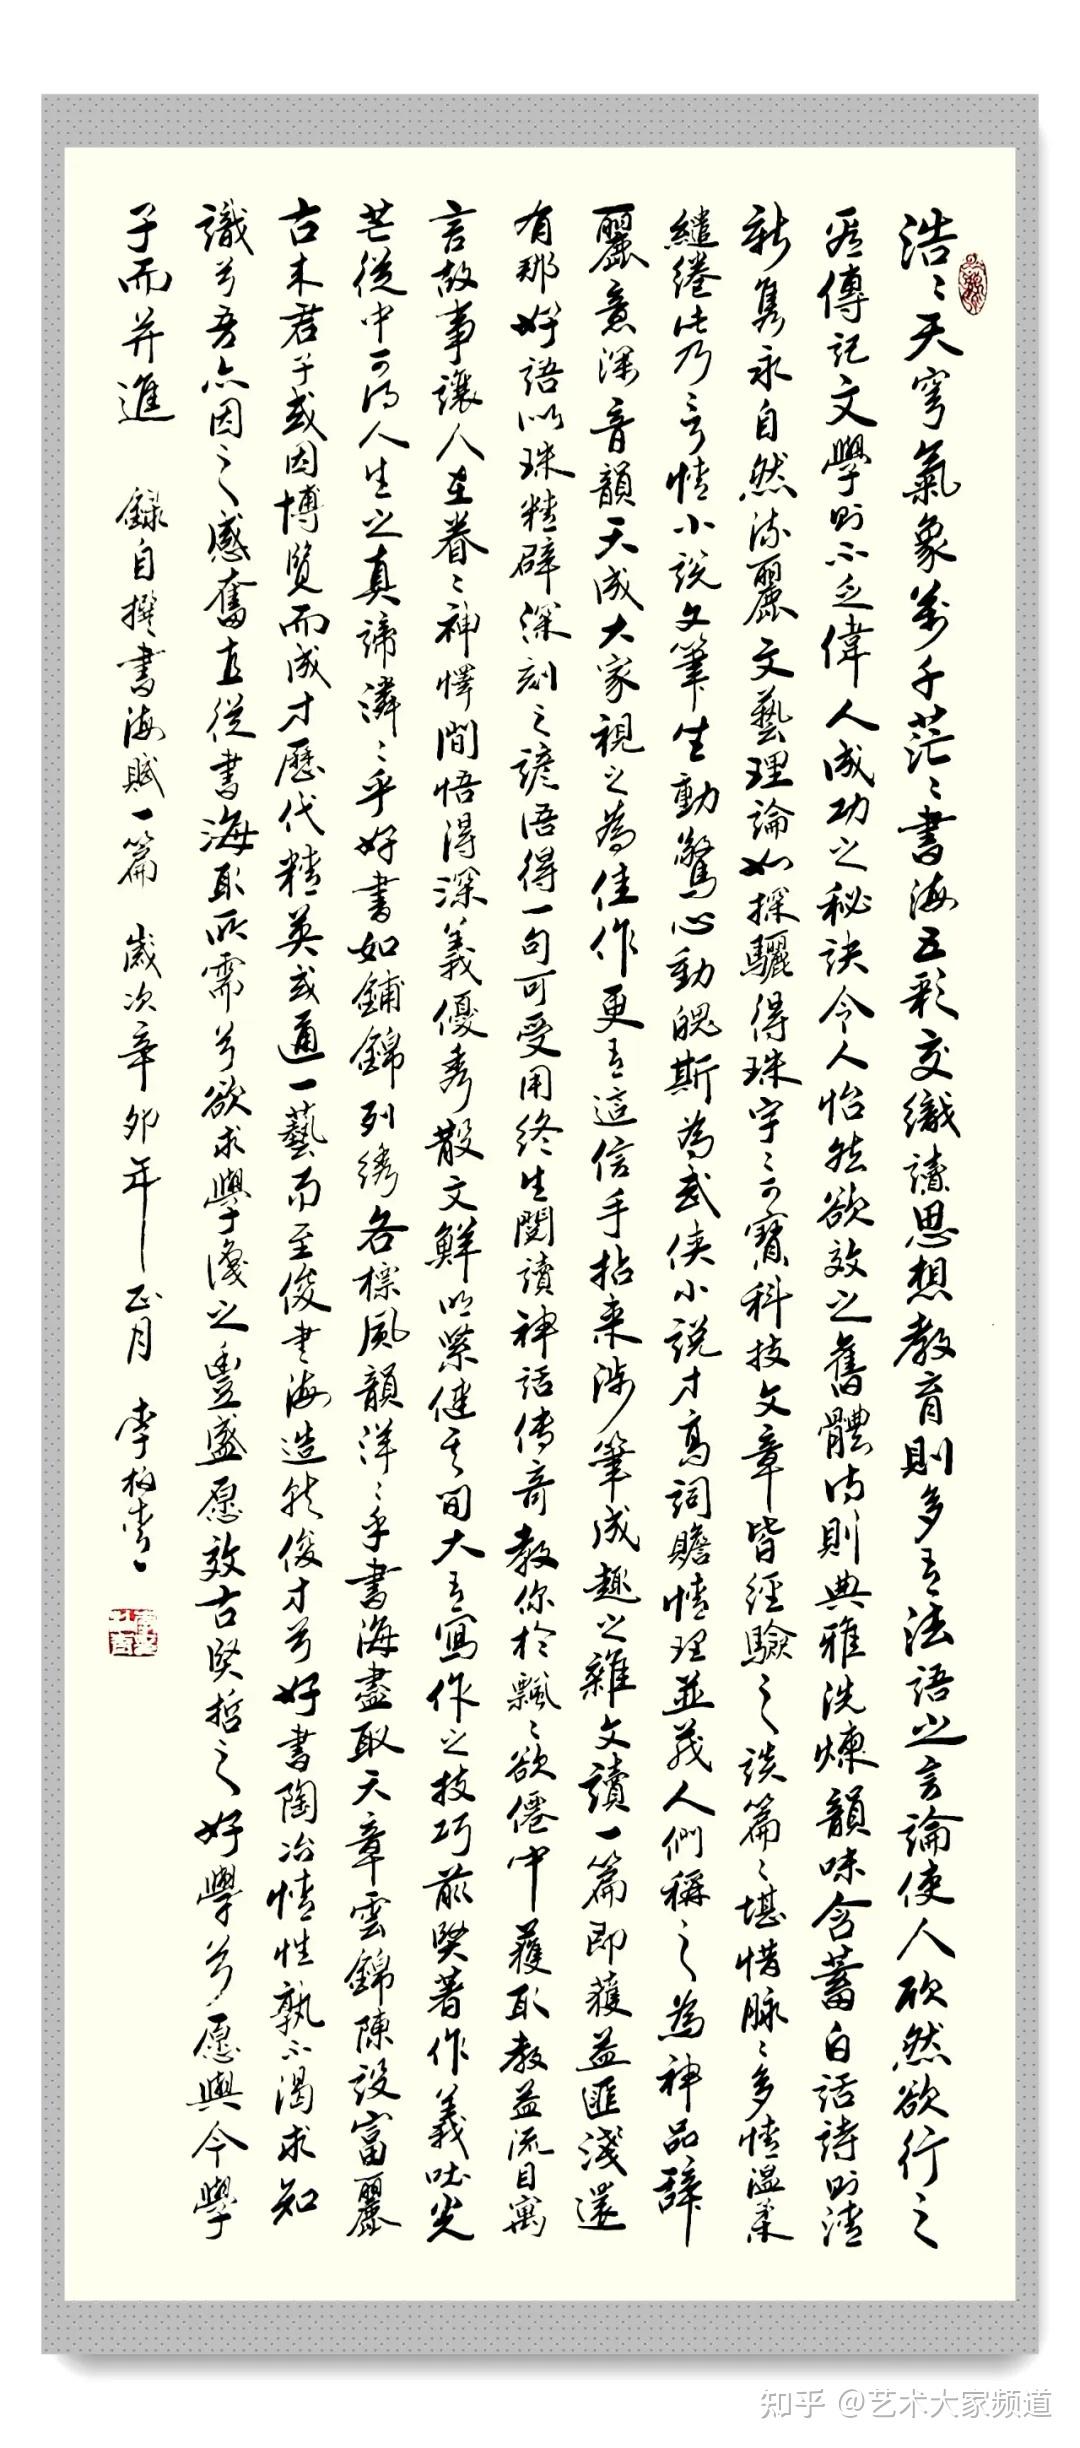 浩〻天穹氣象萬千茫〻書海五彩交織讀思想教育則多有法語之言論使人欣然欲行之
若傳記文學則不乏偉人成功之秘訣令人怡然欲效之舊體詩則典雅洗煉韻味含蓄白話詩則清
新雋永自然流麗文藝理論如探驪得珠字〻可寶科技文章皆經驗之談篇〻堪惜脉〻多情溫柔
繾綣此乃言情小說文筆生動驚心動魄斯為武俠小説才高詞贍情理並茂人們稱之為神品辭
麗意深音韻天成大家視之為佳作更有這信手拈来涉筆成趣之雜文讀一篇即獲益匪淺還
有那好語似珠精辟深刻之諺语得一句可受用终生閱讀神話傳奇教你於飄〻欲僊中獲取教益流目寓
言故事讓人在眷〻神懌間悟得深義優秀散文鮮明緊健其间大有寫作之技巧前賢著作義吐光
芒從中可得人生之真諦潾〻乎好書如鋪錦列綉各標風韻洋〻乎書海盡取天章雲錦陳設富麗
古来君子或因博覽而成才歷代精英或通一藝而至俊書海造就俊才兮好書陶冶情性孰不渴求知
識兮吾亦因之感奮直從書海取所需兮欲求學識之豐盛愿效古賢哲之好學兮愿與今學
子而并進 録自撰書海賦一篇 歲次辛卯年正月 李柏青
知乎 @艺术大家频道